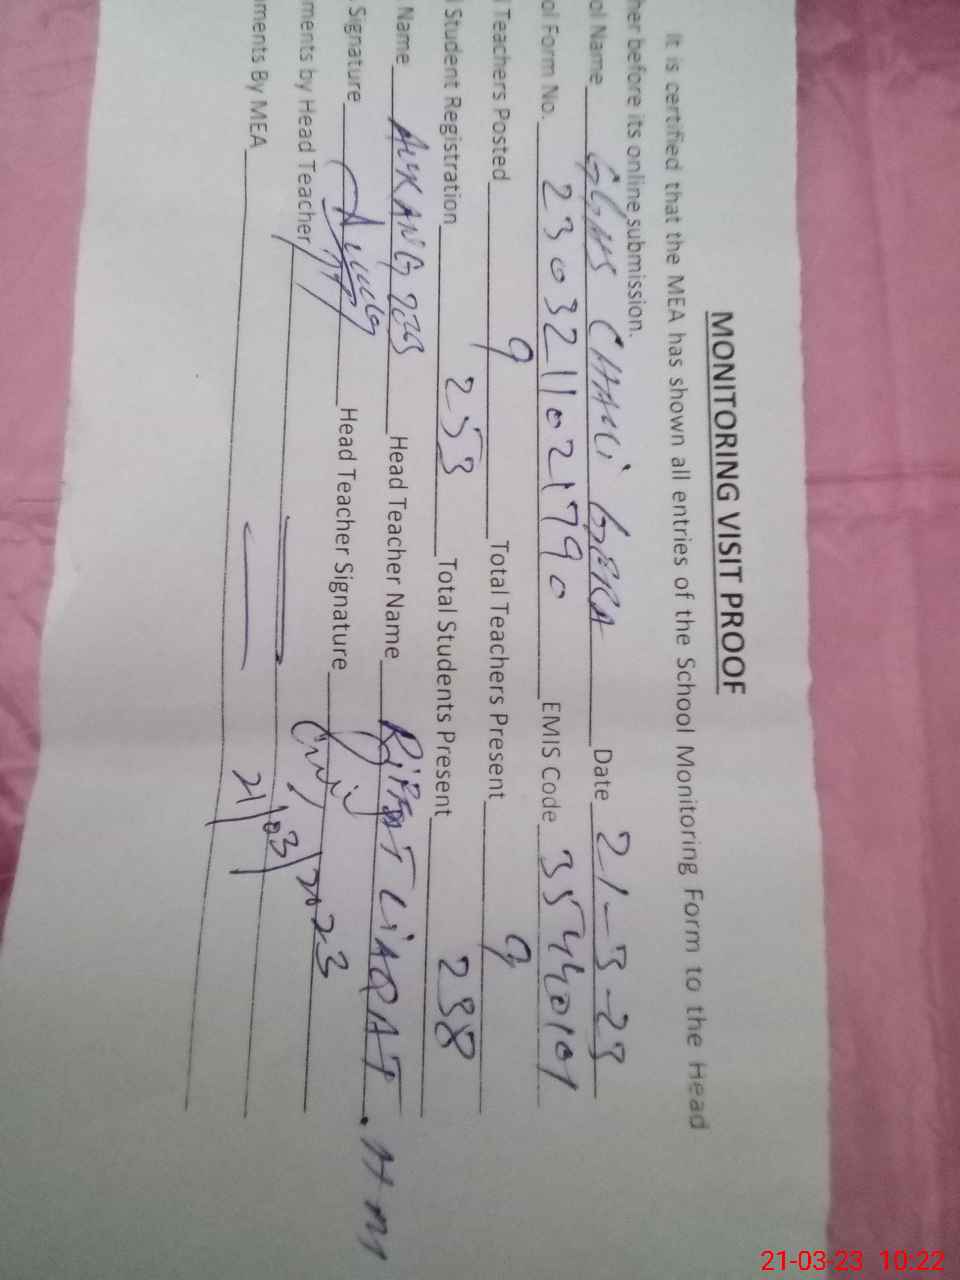 MONITORING VISIT PROOF
It is certified that the MEA has shown all entries of the School Monitoring Form to the Head
her before its online submission.
ol Name GGHS Date 21-3-23
ol Form No. 2303211021790 EMIS Code 35440101
l Teachers Posted 9 Total Teachers Present 9
l Student Registration 253 Total Students Present 238
Name Head Teacher Name RiFFAT LiAQAT. HM
Signature Head Teacher Signature
ments by Head Teacher
ments By MEA
21/03/2023
21-03-23 10:22